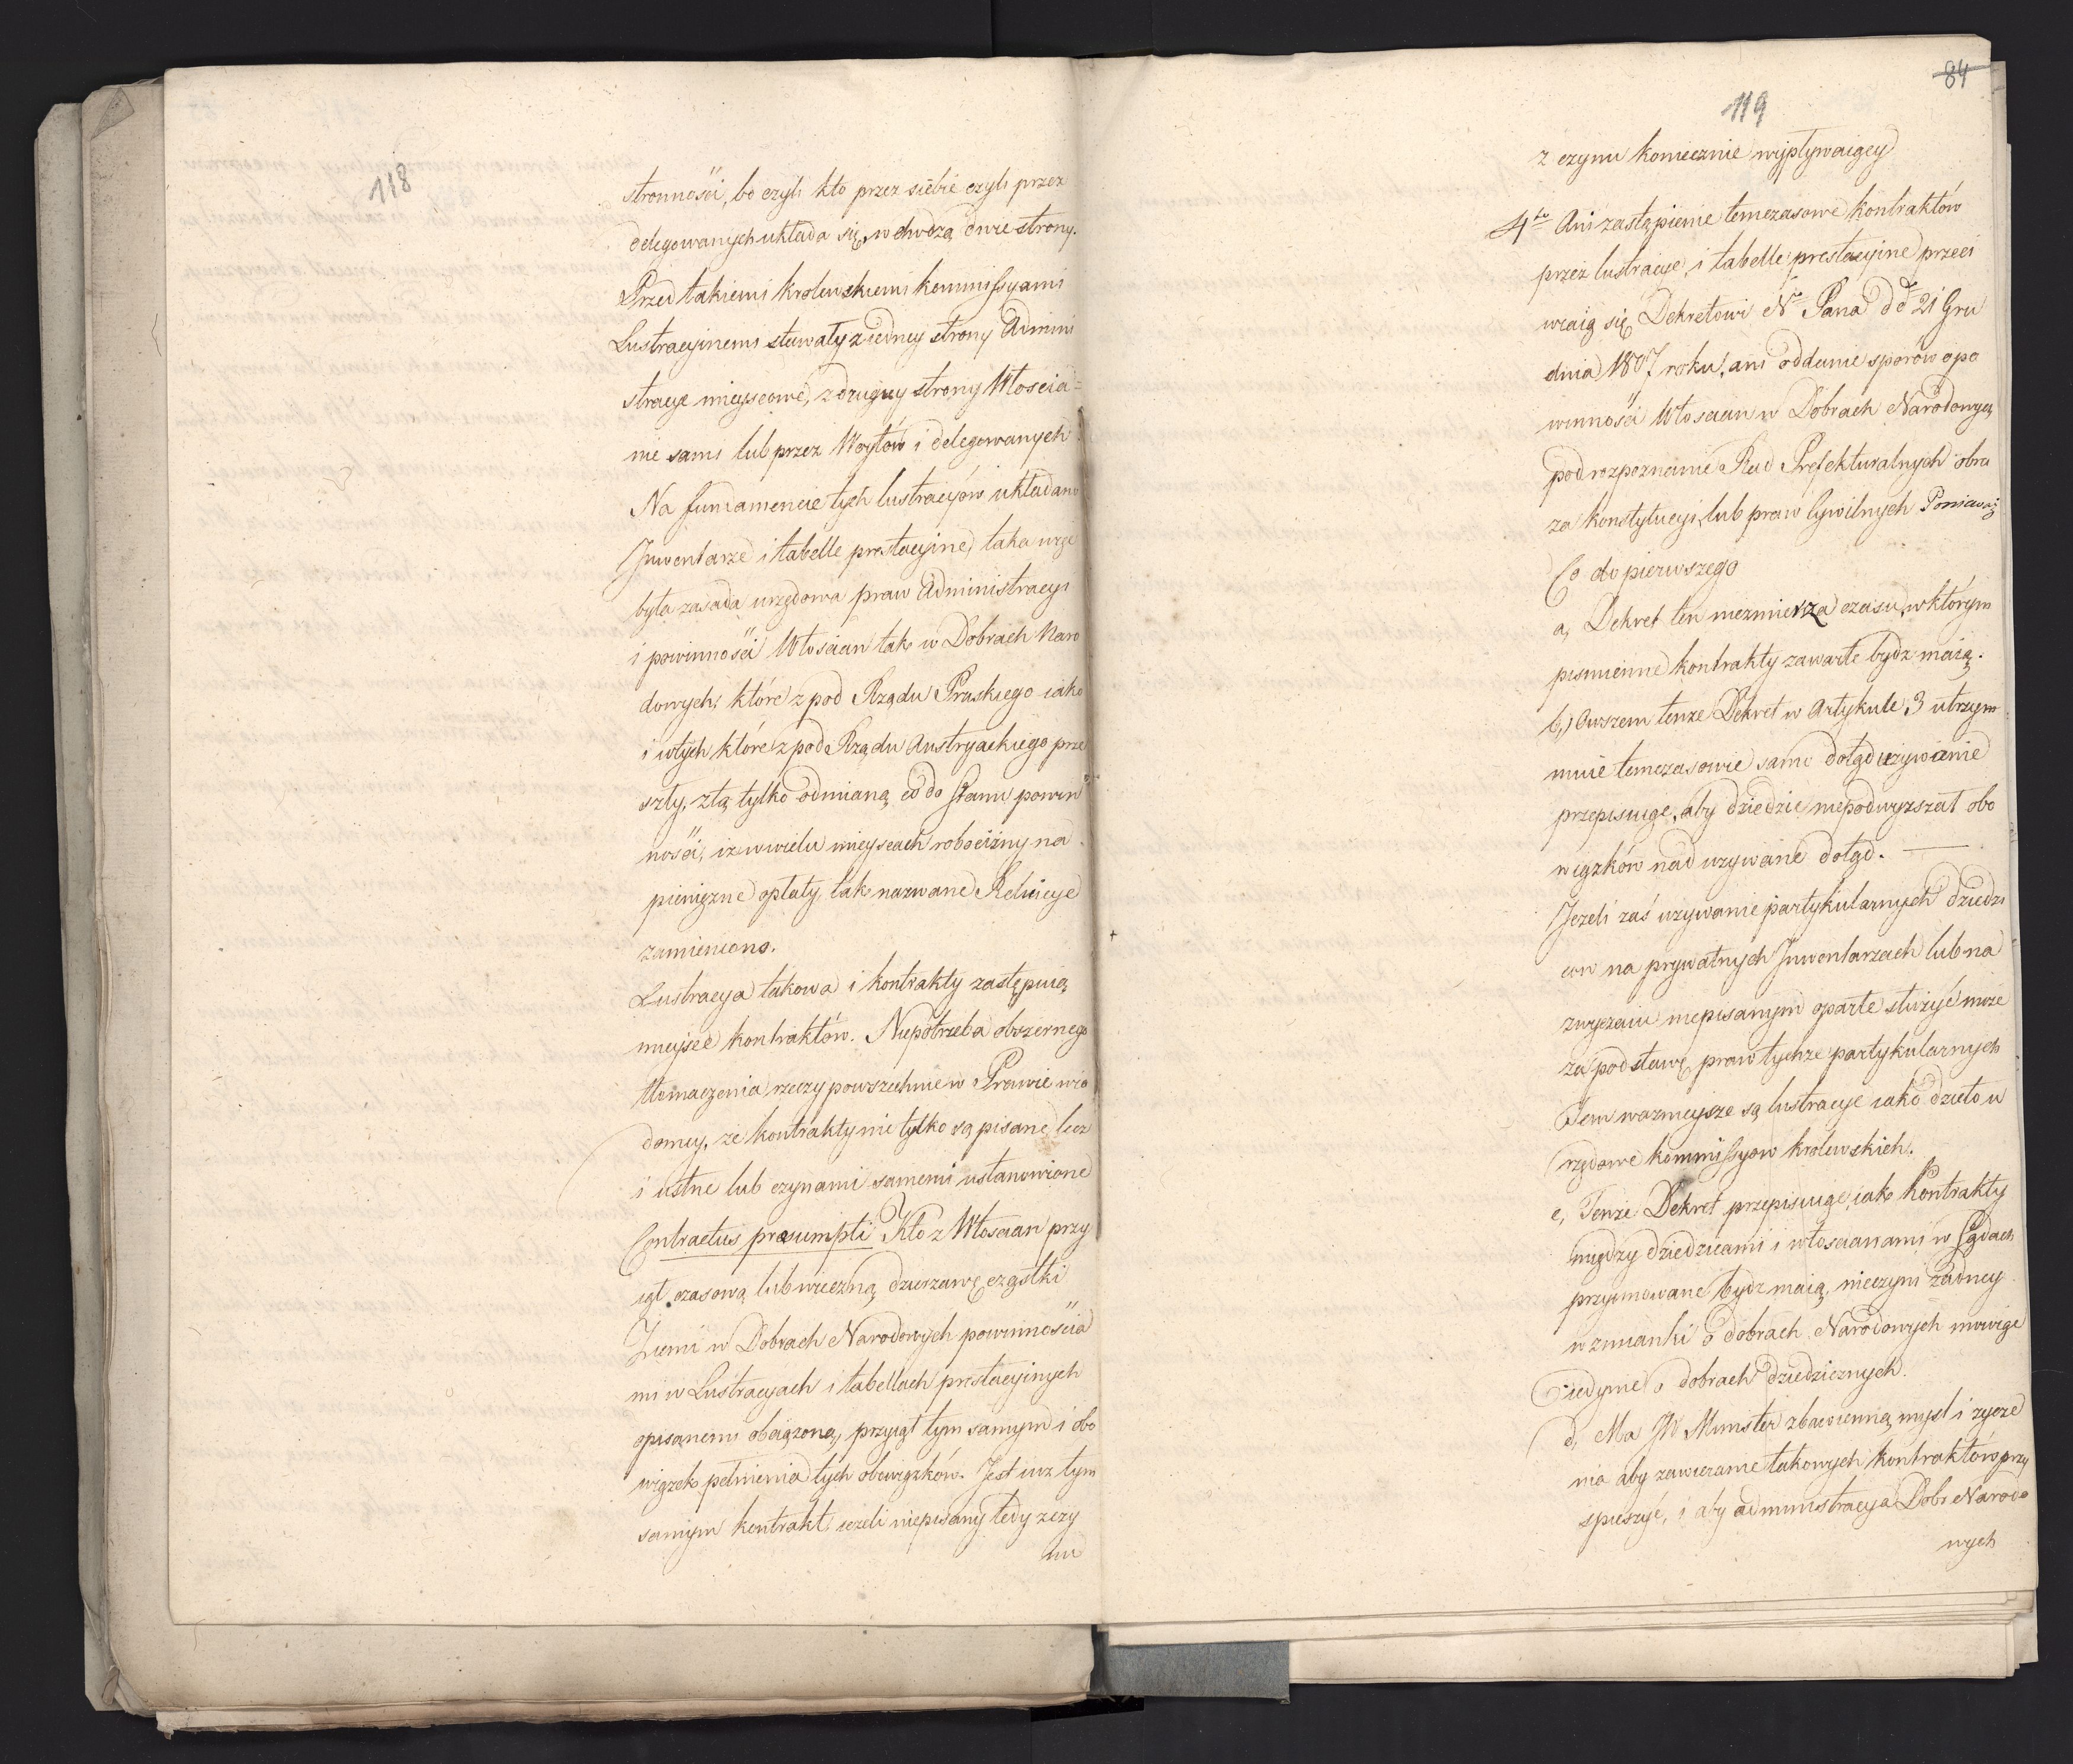 118
stronności, bo czyli kto przez siebie czyli przez
delegowanych układa się, wchodzą dwie strony.
Przed takiemi krolewskiemi kommissyami
Lustracyinemi stawały z iedney strony Admini
stracye mieyscowe, z drugiey strony Włościa=
nie sami lub przez Woytów i delegowanych
Na fundamencie tych lustracyów układano
Inwentarze i tabelle prestacyine, taka więc
była zasada urzędowa praw Administracyi
i powinności Włościan tak w Dobrach Naro
dowych, które z pod Rządu Pruskiego iako
i w tych które z pod Rządu Austryackiego prze
szły, z tą tylko odmianą co do stanu powin
ności, iż w wielu mieyscach robocizny na
pieniężne opłaty, tak nazwane Reluicye
zamieniono.
Lustracya takowa i kontrakty zastępuią
mieysce kontraktów. Niepotrzeba obszernego
tłomaczenia rzeczy powszechnie w Prawie wia
domey, że kontrakty nie tylko są pisane lecz
i ustne lub czynami samemi ustanowione
Contractus praesumpti. Kto z Włościan przy
iął czasową lub wieczną dzierzawę cząstki
Ziemi w Dobrach Narodowych powinnościa
mi w Lustracyach i tabellach prestacyinych
opisanemi obciążoną, przyiął tym samym i obo
wiązek pełnienia tych obowiązków. Jest iuż tym
samym kontrakt ieżeli niepisany tedy z czy
nu
84
119
z czynu koniecznie wypływaiącey
4to Ani zastąpienie temczasowe kontraktów
przez lustracye, i tabelle prestacyine przeci
wiaią się Dekretowi N. Pana dd 21 Gru
dnia 1807 roku, ani oddanie sporów o po
winności Włościan w Dobrach Narodowych
pod rozpoznanie Rad Prefekturalnych obra
za konstytucyi, lub praw Cywilnych Ponieważ
Co do pierwszego
a, Dekret ten niezmierza czasu, w którym
piśmienne kontrakty zawarte bydź maią.
b,) Owszem tenże Dekret w Artykule 3 utrzym
muie temczasowie samo dotąd używanie
przepisuiąc, aby dziedzic niepodwyższał obo
wiązków nad używane dotąd.
Jeżeli zaś używanie partykularnych dziedzi
ców na prywatnych Inwentarzach lub na
zwyczaiu niepisanym oparte służyć może
za podstawę praw tychże partykularnych
Tem ważnieysze są lustracye iako dzieło u
rzędowe kommissyow krolewskich.
c, Tenże Dekret przepisuiąc, iako Kontrakty
między dziedzicami i włościanami w Sądach
przyimowane bydź maią, nieczyni żadney
wzmianki o dobrach Narodowych mowiąc
iedynie o dobrach dziedzicznych.
d, Ma JW Minister zbawienną myśl i życze
nia aby zawieranie takowych kontraktów przy
spieszyć, i aby administracya Dobr Narodo
wych